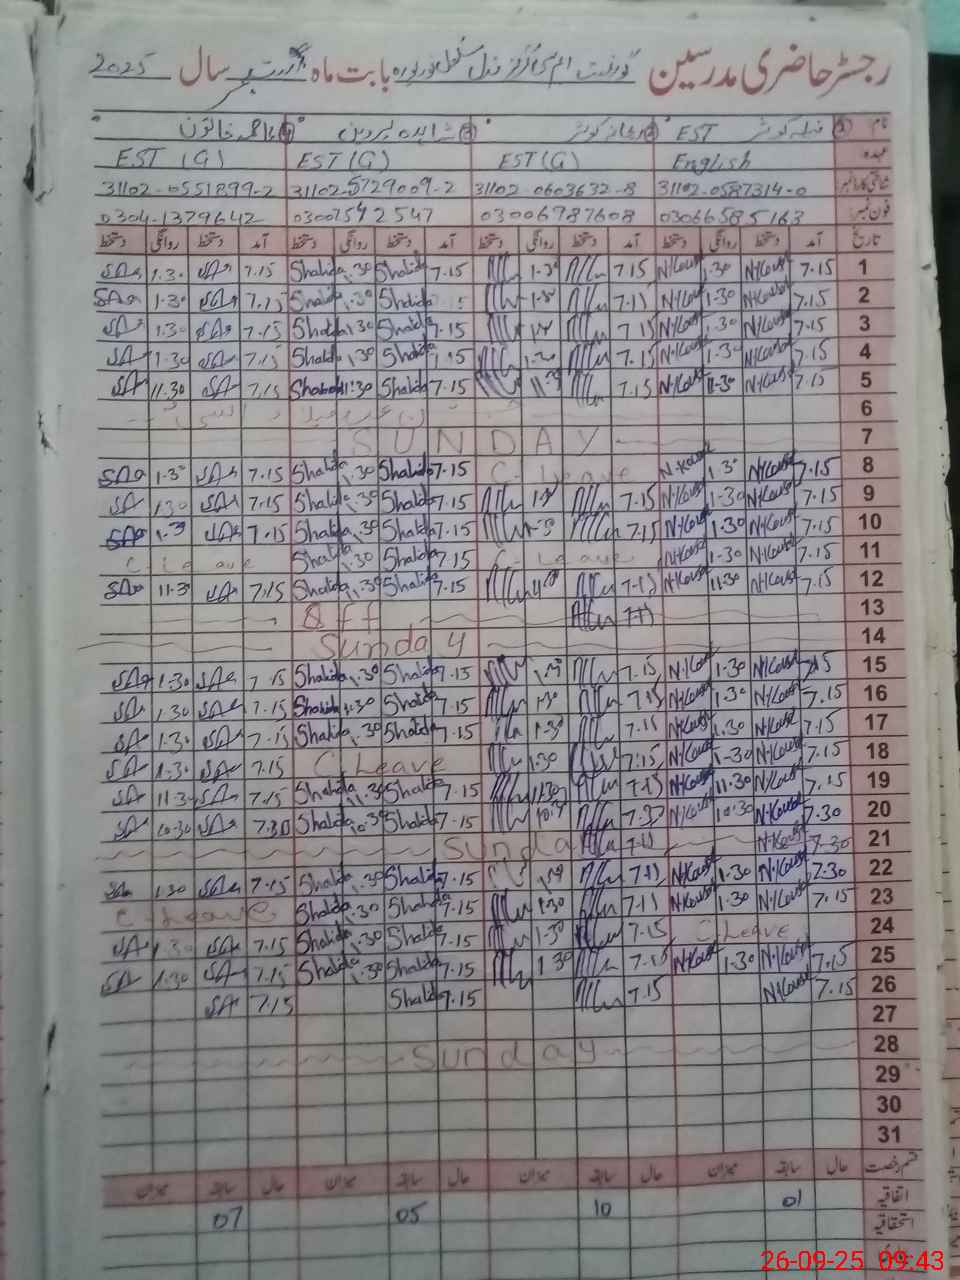 رجسٹر حاضری مدرسین گورنمنٹ ایم سی گرلز مڈل سکول بابت ماہ ستمبر سال 2025
نام EST
عہدہ English EST (G) EST (G) EST (G)
شناختی کارڈ نمبر 31102-0587314-0 31102-0603632-8 31102-5729009-2 31102-0551899-2
فون نمبر 03066585163 03006787608 03007542547 0304-1379642
تاریخ آمد دستخط روانگی دستخط آمد دستخط روانگی دستخط آمد دستخط روانگی دستخط آمد دستخط روانگی دستخط
1 7.15 N.Kousar 1.30 N.Kousar 7.15 1.30 7.15 Shahida 1.30 Shahida 7.15 1.30
2 7.15 N.Kousar 1.30 N.Kousar 7.15 1.30 7.15 Shahida 1.30 Shahida 7.15 1.30
3 7.15 N.Kousar 1.30 N.Kousar 7.15 7.15 Shahida 1.30 Shahida 7.15 1.30
4 7.15 N.Kousar 1.30 N.Kousar 7.15 1.30 7.15 Shahida 1.30 Shahida 7.15 1.30
5 7.15 N.Kousar 11.30 N.Kousar 7.15 11.30 7.15 Shahida 11.30 Shahida 7.15 11.30
6
7 SUNDAY
8 7.15 N.Kousar 1.30 N.Kousar C-Leave 7.15 Shahida 1.30 Shahida 7.15 1.30
9 7.15 N.Kousar 1.30 N.Kousar 7.15 1.30 7.15 Shahida 1.30 Shahida 7.15 1.30
10 7.15 N.Kousar 1.30 N.Kousar 7.15 1.30 7.15 Shahida 1.30 Shahida 7.15 1.30
11 7.15 N.Kousar 1.30 N.Kousar C-Leave 7.15 Shahida 1.30 Shahida C Leave
12 7.15 N.Kousar 11.30 N.Kousar 7.15 7.15 Shahida 11.30 Shahida 7.15 11.30
13 7.15 Off
14 Sunday
15 7.15 N.Kousar 1.30 N.Kousar 7.15 1.30 7.15 Shahida 1.30 Shahida 7.15 1.30
16 7.15 N.Kousar 1.30 N.Kousar 7.15 1.30 7.15 Shahida 1.30 Shahida 7.15 1.30
17 7.15 N.Kousar 1.30 N.Kousar 7.15 1.30 7.15 Shahida 1.30 Shahida 7.15 1.30
18 7.15 N.Kousar 1.30 N.Kousar 7.15 1.30 C Leave 7.15 1.30
19 7.15 N.Kousar 11.30 N.Kousar 7.15 11.30 7.15 Shahida 11.30 Shahida 7.15 11.30
20 7.30 N.Kousar 10.30 N.Kousar 7.30 10.30 7.15 Shahida 10.30 Shahida 7.30 10.30
21 7.30 N.Kousar 7.15 Sunday
22 7.30 N.Kousar 1.30 N.Kousar 7.15 1.30 7.15 Shahida 1.30 Shahida 7.15 1.30
23 7.15 N.Kousar 1.30 N.Kousar 7.15 1.30 7.15 Shahida 1.30 Shahida C-Leave
24 C Leave 7.15 1.30 7.15 Shahida 1.30 Shahida 7.15 1.30
25 7.15 N.Kousar 1.30 N.Kousar 7.15 1.30 7.15 Shahida 1.30 Shahida 7.15 1.30
26 7.15 N.Kousar 7.15 7.15 Shahida 7.15
27
28 Sunday
29
30
31
قسم رخصت حال سابقہ میزان حال سابقہ میزان حال سابقہ میزان حال سابقہ میزان
اتفاقیہ 01 10 05 07
استحقاقیہ
26-09-25 09:43